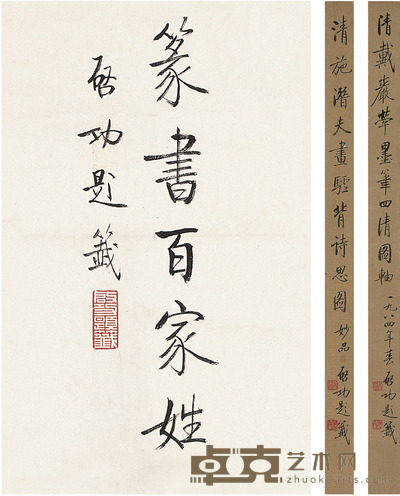 篆書百家姓
啓功題籤
清施潛夫畫驢背詩思圖 妙品 啓功題籤
清戴嚴犖墨筆四清圖軸 一九八四年春 啓功題籤
卓克艺术网
www.zhuokearts.com